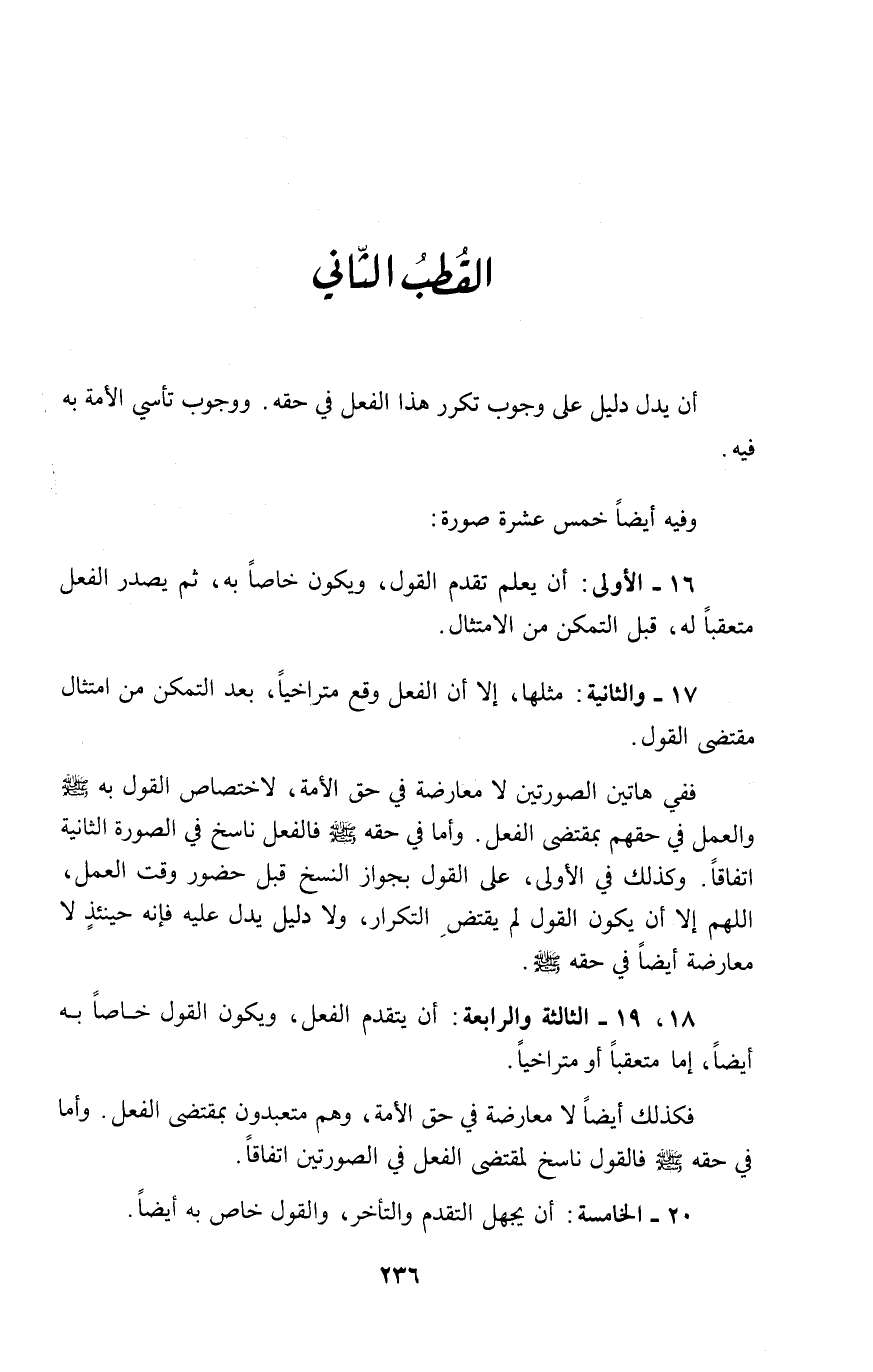 القُطبُ الثّاني
أن يدل دليل على وجوب تكرر هذا الفعل في حقه. ووجوب تأسي الأمة به
فيه.
وفيه أيضاً خمس عشرة صورة:
١٦ - الأولى: أن يعلم تقدم القول، ويكون خاصاً به، ثم يصدر الفعل
متعقباً له، قبل التمكن من الامتثال.
١٧ - والثانية: مثلها، إلا أن الفعل وقع متراخياً، بعد التمكن من امتثال
مقتضى القول.
ففي هاتين الصورتين لا معارضة في حق الأمة، لاختصاص القول به ﷺ
والعمل في حقهم بمقتضى الفعل. وأما في حقه ﷺ فالفعل ناسخ في الصورة الثانية
اتفاقاً. وكذلك في الأولى، على القول بجواز النسخ قبل حضور وقت العمل،
اللهم إلا أن يكون القول لم يقتضِ التكرار، ولا دليل يدل عليه فإنه حينئذٍ لا
معارضة أيضاً في حقه ﷺ.
١٨، ١٩ - الثالثة والرابعة: أن يتقدم الفعل، ويكون القول خاصاً به
أيضاً، إما متعقباً أو متراخياً.
فكذلك أيضاً لا معارضة في حق الأمة، وهم متعبدون بمقتضى الفعل. وأما
في حقه ﷺ فالقول ناسخ لمقتضى الفعل في الصورتين اتفاقاً.
٢٠ - الخامسة: أن يجهل التقدم والتأخر، والقول خاص به أيضاً.
٢٣٦